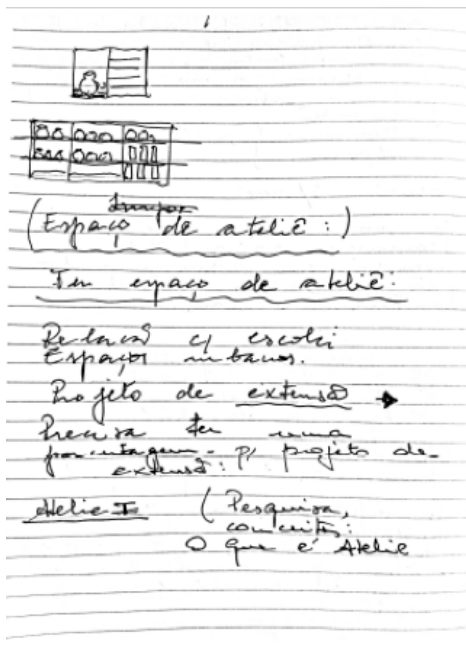 (Espaço de ateliê:)
Ter espaço de ateliê:
Relação c/ escola
Espaços urbanos.
Projeto de extensão →
Precisa ter uma
porcentagem - p/ projeto de
extensão:
Atelie I (Pesquisa,
conceitos:
O que é Atelie